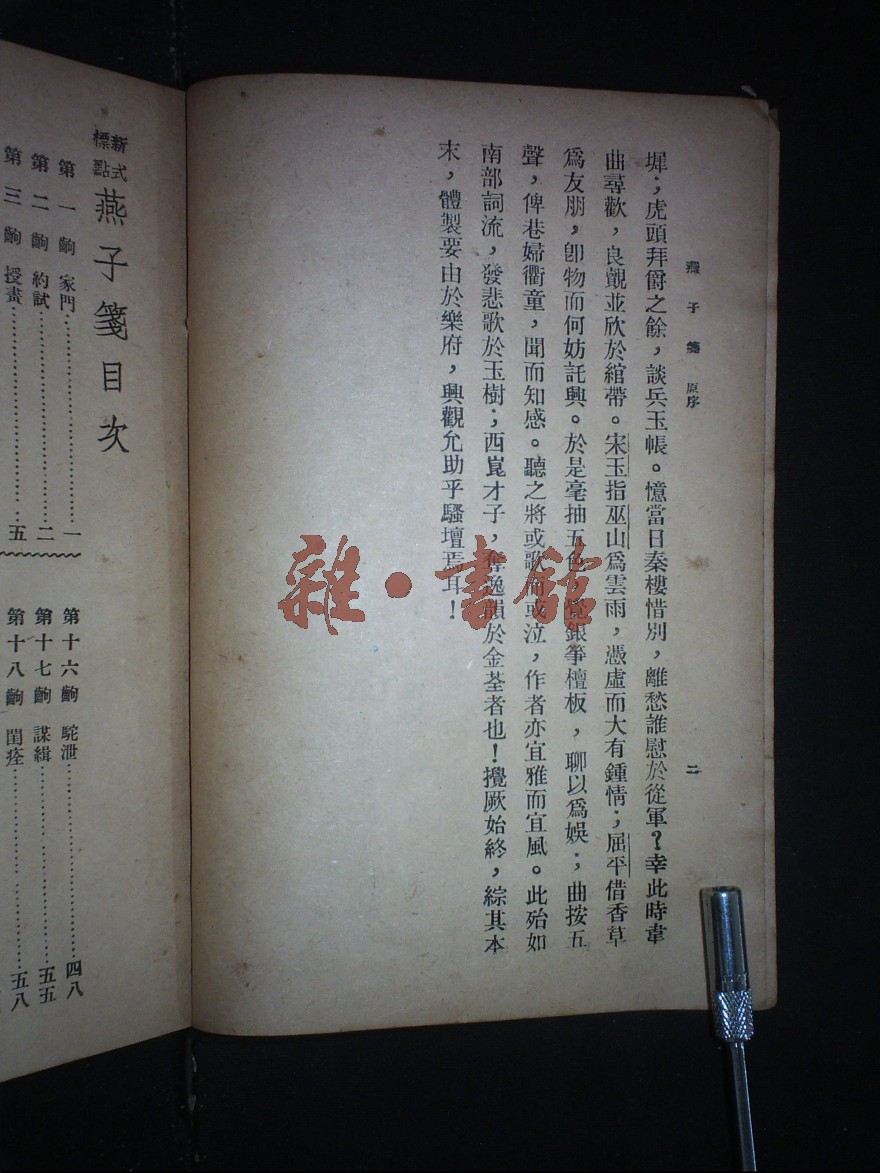 燕子箋 原序
二
墀；虎頭拜爵之餘，談兵玉帳。憶當日秦樓惜別，離愁誰慰於從軍？幸此時韋
曲尋歡，良覿並欣於綰帶。宋玉指巫山爲雲雨，憑虛而大有鍾情；屈平借香草
爲友朋，卽物而何妨託興。於是毫抽五色，覓銀筝檀板，聊以爲娛；曲按五
聲，俾巷婦衢童，聞而知感。聽之將或歌而或泣，作者亦宜雅而宜風。此殆如
南部詞流，發悲歌於玉樹；西崑才子，奪逸韻於金荃者也！攪厥始終，綜其本
末，體製要由於樂府，興觀允助乎騷壇焉耳！
新式標點 燕子箋目次
第一齣 家門 一
第二齣 約試 二
第三齣 授畫 五
第十六齣 駝泄 四八
第十七齣 謀緝 五五
第十八齣 閨痊 五八
雜·書館